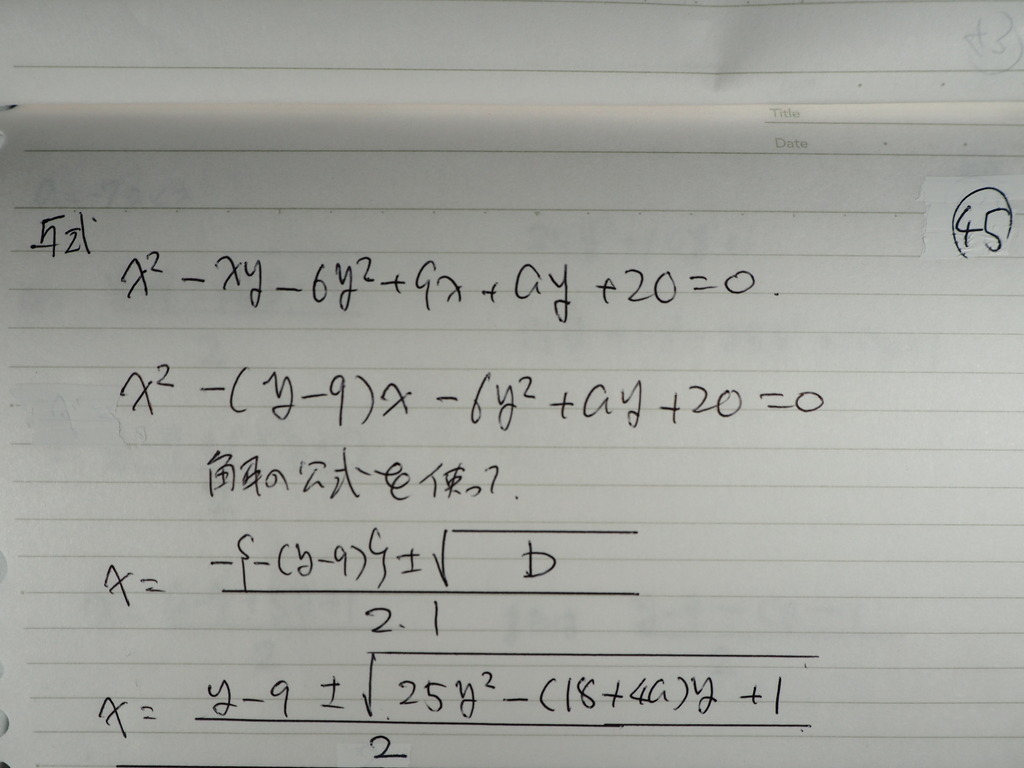 Title
Date
45
与式
x² - xy - 6y² + 9x + ay + 20 = 0.
x² - (y-9)x - 6y² + ay + 20 = 0
解の公式を使って.
x = \frac{-{-(y-9)} ± √D}{2・1}
x = \frac{y-9 ± √(25y² - (18+4a)y + 1)}{2}